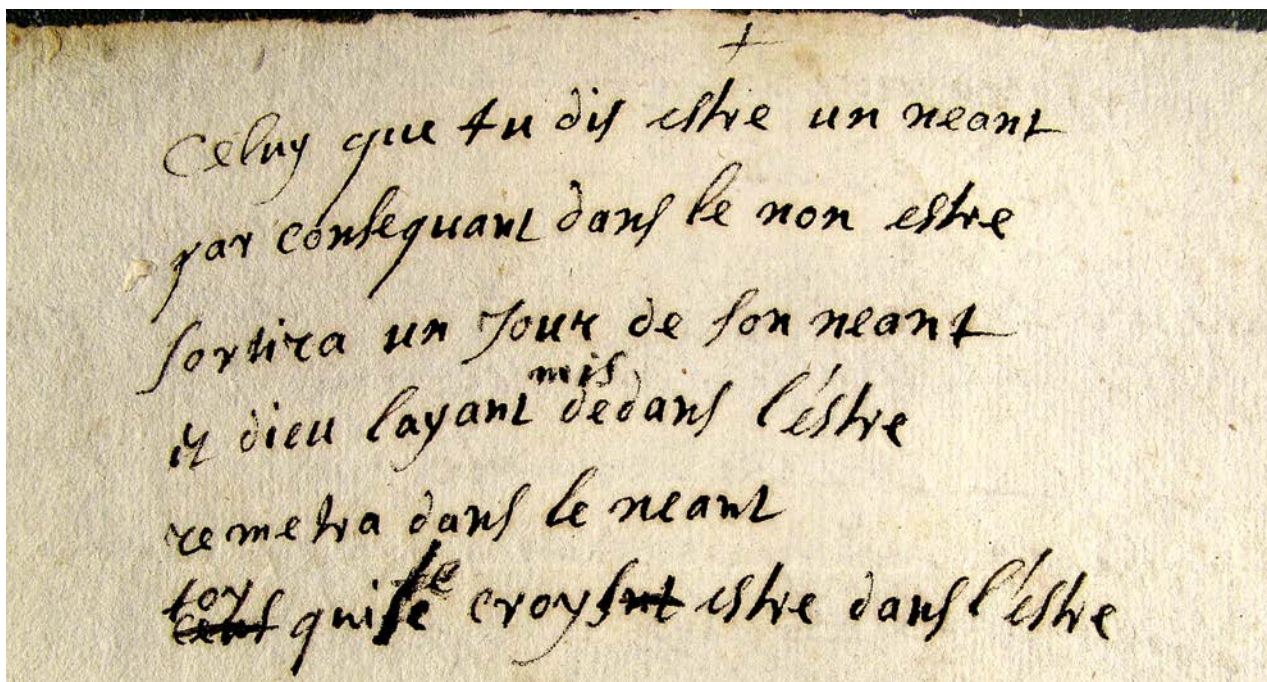 +
Celuy que tu dis estre un neant
par consequant dans le non estre
sortira un Jour de son neant
et dieu layant mis dedans l'éstre
remetra dans le neant
toy qui te croys estre dans l'éstre